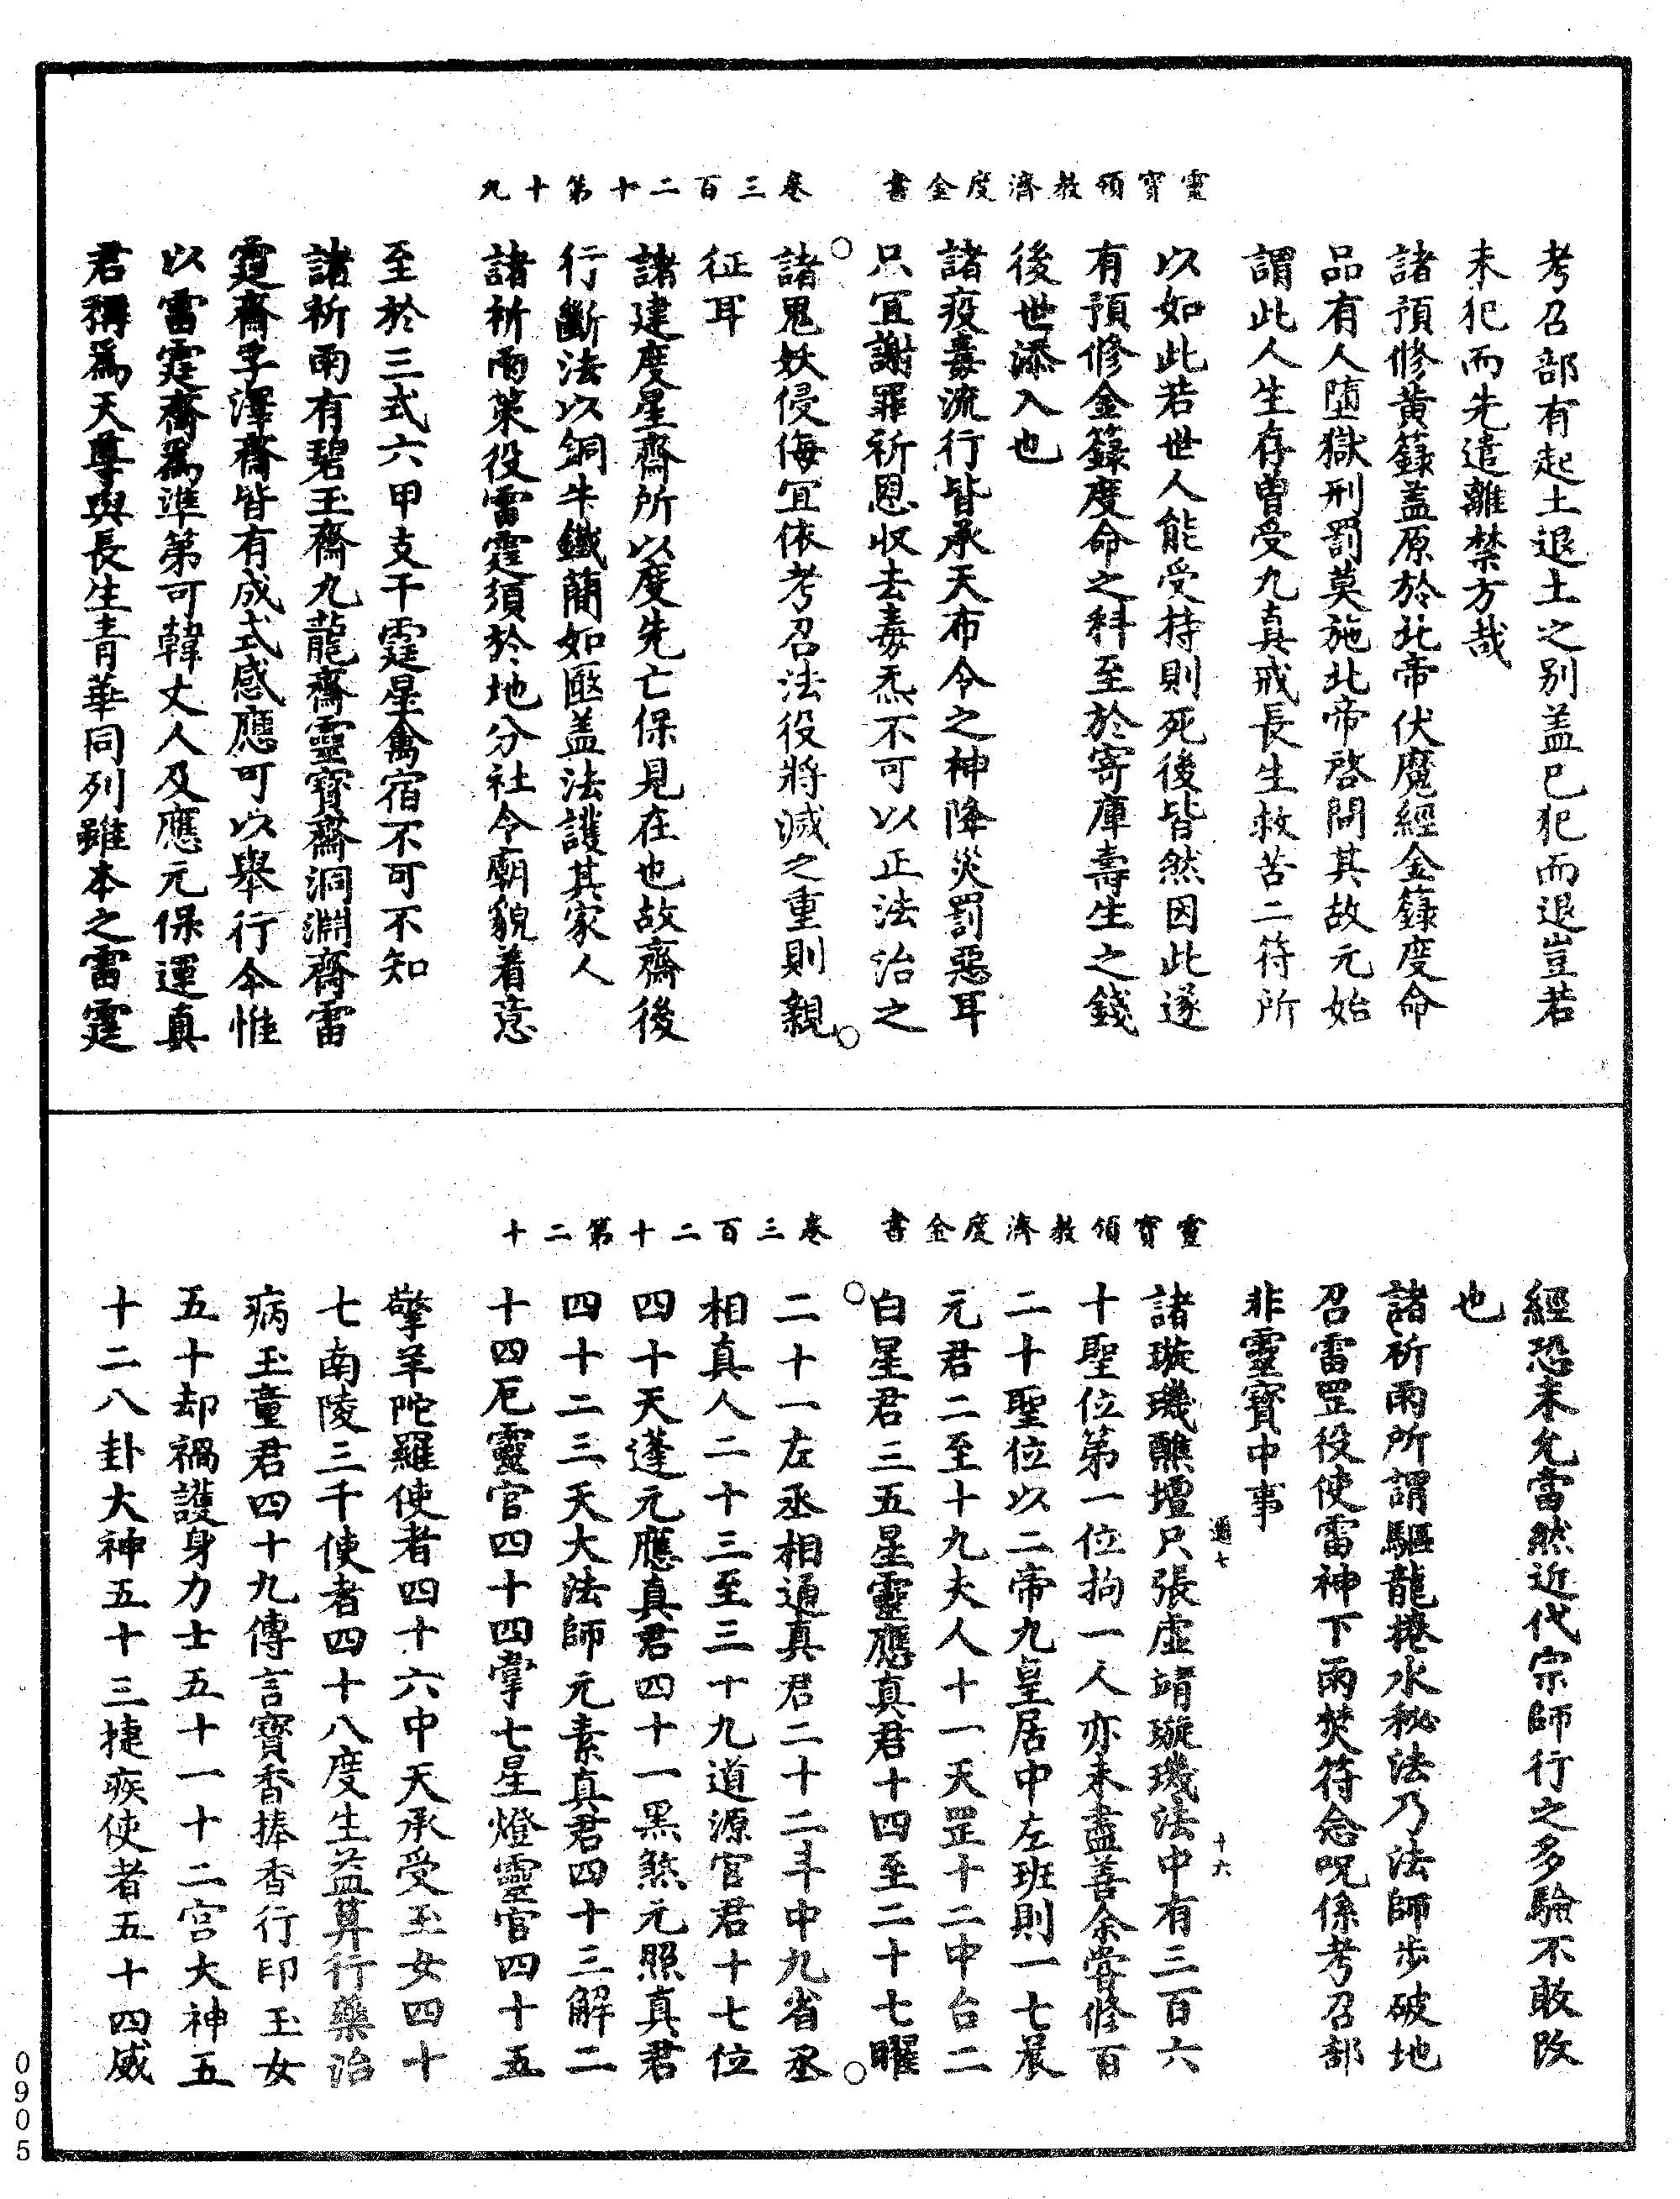 靈寶領教濟度金書　卷三百二十第十九
考召部有起土退土之別盖已犯而退豈若
未犯而先遣離禁方哉
諸預修黃籙盖原於北帝伏魔經金籙度命
品有人墮獄刑罰莫施北帝啓問其故元始
謂此人生存曾受九真戒長生救苦二符所
以如此若世人能受持則死後皆然因此遂
有預修金籙度命之科至於寄庫壽生之錢
後世添入也
諸疫毒流行皆承天布令之神降災罰惡耳
只宜謝罪祈恩收去毒炁不可以正法治之
諸鬼妖侵侮宜依考召法役將滅之重則親
征耳
諸建度星齋所以度先亡保見在也故齋後
行斷法以銅牛鐵蕳如匭盖法護其家人
諸祈雨策役雷霆須於地分社令廟貌着意
至於三式六甲支干霆星禽宿不可不知
諸祈雨有碧玉齋九龍齋靈寶齋洞淵齋雷
霆齋孚澤齋皆有成式感應可以舉行今惟
以雷霆齋爲準第可韓丈人及應元保運真
君稱爲天尊與長生青華同列雖本之雷霆
靈寶領教濟度金書　卷三百二十第二十
經恐未允當然近代宗師行之多驗不敢改
也
諸祈雨所謂驅龍捲水秘法乃法師步破地
召雷罡役使雷神下雨焚符念呪係考召部
非靈寶中事
諸璇璣醮壇只張虛靖璇璣法中有三百六
十聖位第一位拘一人亦未盡善余嘗修百
二十聖位以二帝九皇居中左班則一七晨
元君二至十九夫人十一天罡十二中台二
白星君三五星靈應真君十四至二十七曜
二十一左丞相通真君二十二斗中九省丞
相真人二十三至三十九道源官君十七位
四十天蓬元應真君四十一黑煞元照真君
四十二三天大法師元素真君四十三解二
十四厄靈官四十四掌七星燈靈官四十五
擎羊陀羅使者四十六中天承受玉女四十
七南陵三千使者四十八度生益算行藥治
病玉童君四十九傳言寶香捧香行印玉女
五十却禍護身力士五十一十二宮大神五
十二八卦大神五十三捷疾使者五十四威
通七
十六
0905